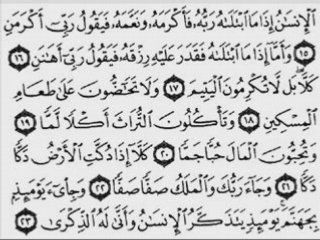 ٱلْإِنسَٰنُ إِذَا مَا ٱبْتَلَىٰهُ رَبُّهُۥ فَأَكْرَمَهُۥ وَنَعَّمَهُۥ فَيَقُولُ رَبِّىٓ أَكْرَمَنِ
١٥ وَأَمَّآ إِذَا مَا ٱبْتَلَىٰهُ فَقَدَرَ عَلَيْهِ رِزْقَهُۥ فَيَقُولُ رَبِّىٓ أَهَٰنَنِ ١٦
كَلَّا ۖ بَل لَّا تُكْرِمُونَ ٱلْيَتِيمَ ١٧ وَلَا تَحَٰٓضُّونَ عَلَىٰ طَعَامِ
ٱلْمِسْكِينِ ١٨ وَتَأْكُلُونَ ٱلتُّرَاثَ أَكْلًا لَّمًّا ١٩
وَتُحِبُّونَ ٱلْمَالَ حُبًّا جَمًّا ٢٠ كَلَّآ إِذَا دُكَّتِ ٱلْأَرْضُ دَكًّا
دَكًّا ٢١ وَجَآءَ رَبُّكَ وَٱلْمَلَكُ صَفًّا صَفًّا ٢٢ وَجِا۟ىٓءَ يَوْمَئِذٍۭ
بِجَهَنَّمَ ۚ يَوْمَئِذٍ يَتَذَكَّرُ ٱلْإِنسَٰنُ وَأَنَّىٰ لَهُ ٱلذِّكْرَىٰ ٢٣